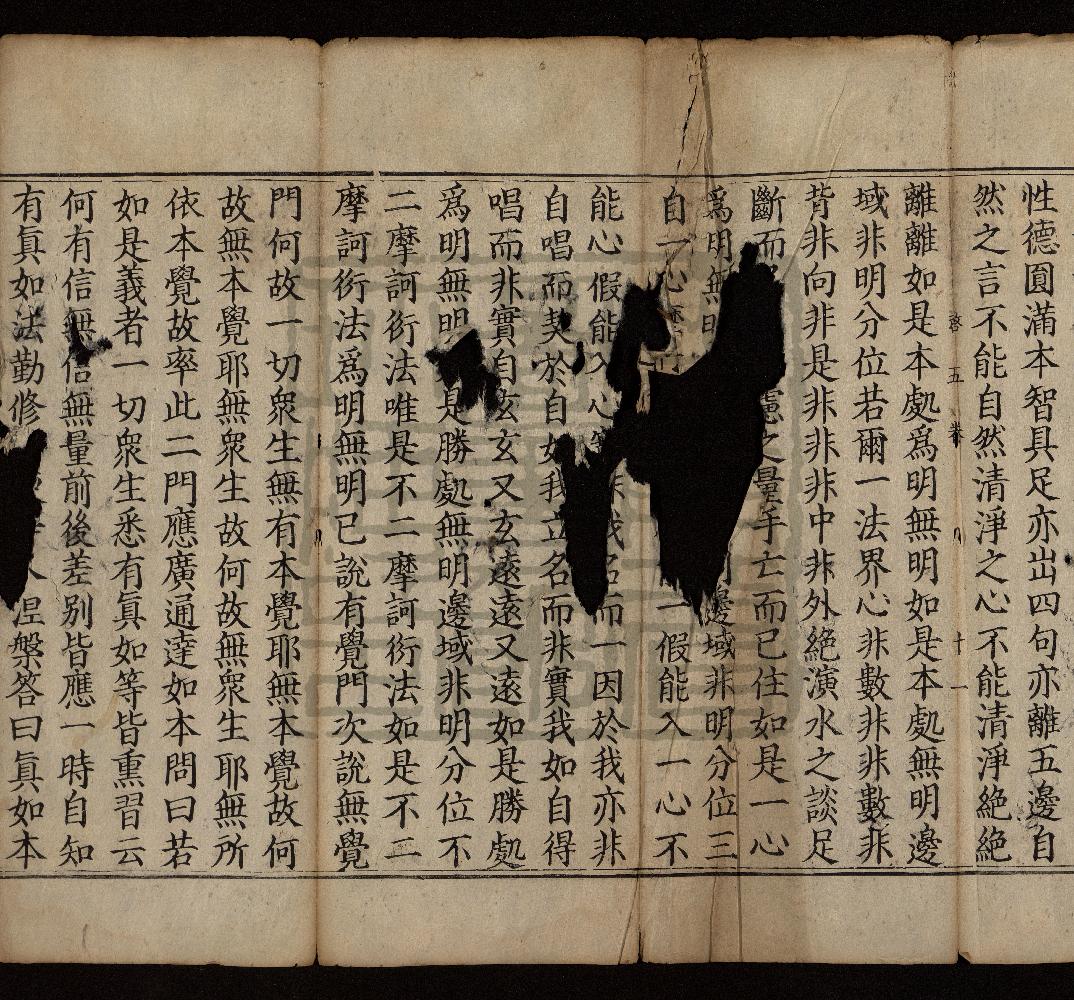 性德圓滿本智具足亦出四句亦離五邊自
然之言不能自然清淨之心不能清淨絶絶
啓 五 卷 十一
離離如是本處爲明無明如是本處無明邊
域非明分位若爾一法界心非數非非數非
背非向非是非非非中非外絶演水之談足
斷而慮之量手亡而已住如是一心
爲明無明邊域非明分位三
自一心一假能入一心不
能心假能入心我名而一因於我亦非
自唱而契於自如我立名而非實我如自得
唱而非實自玄玄又玄遠遠又遠如是勝處
爲明無明是勝處無明邊域非明分位不
二摩訶衍法唯是不二摩訶衍法如是不二
摩訶衍法爲明無明已說有覺門次說無覺
門何故一切衆生無有本覺耶無本覺故何
故無本覺耶無衆生故何故無衆生耶無所
依本覺故率此二門應廣通達如本問曰若
如是義者一切衆生悉有眞如等皆熏習云
何有信無信無量前後差别皆應一時自知
有眞如法勤修入涅槃答曰眞如本